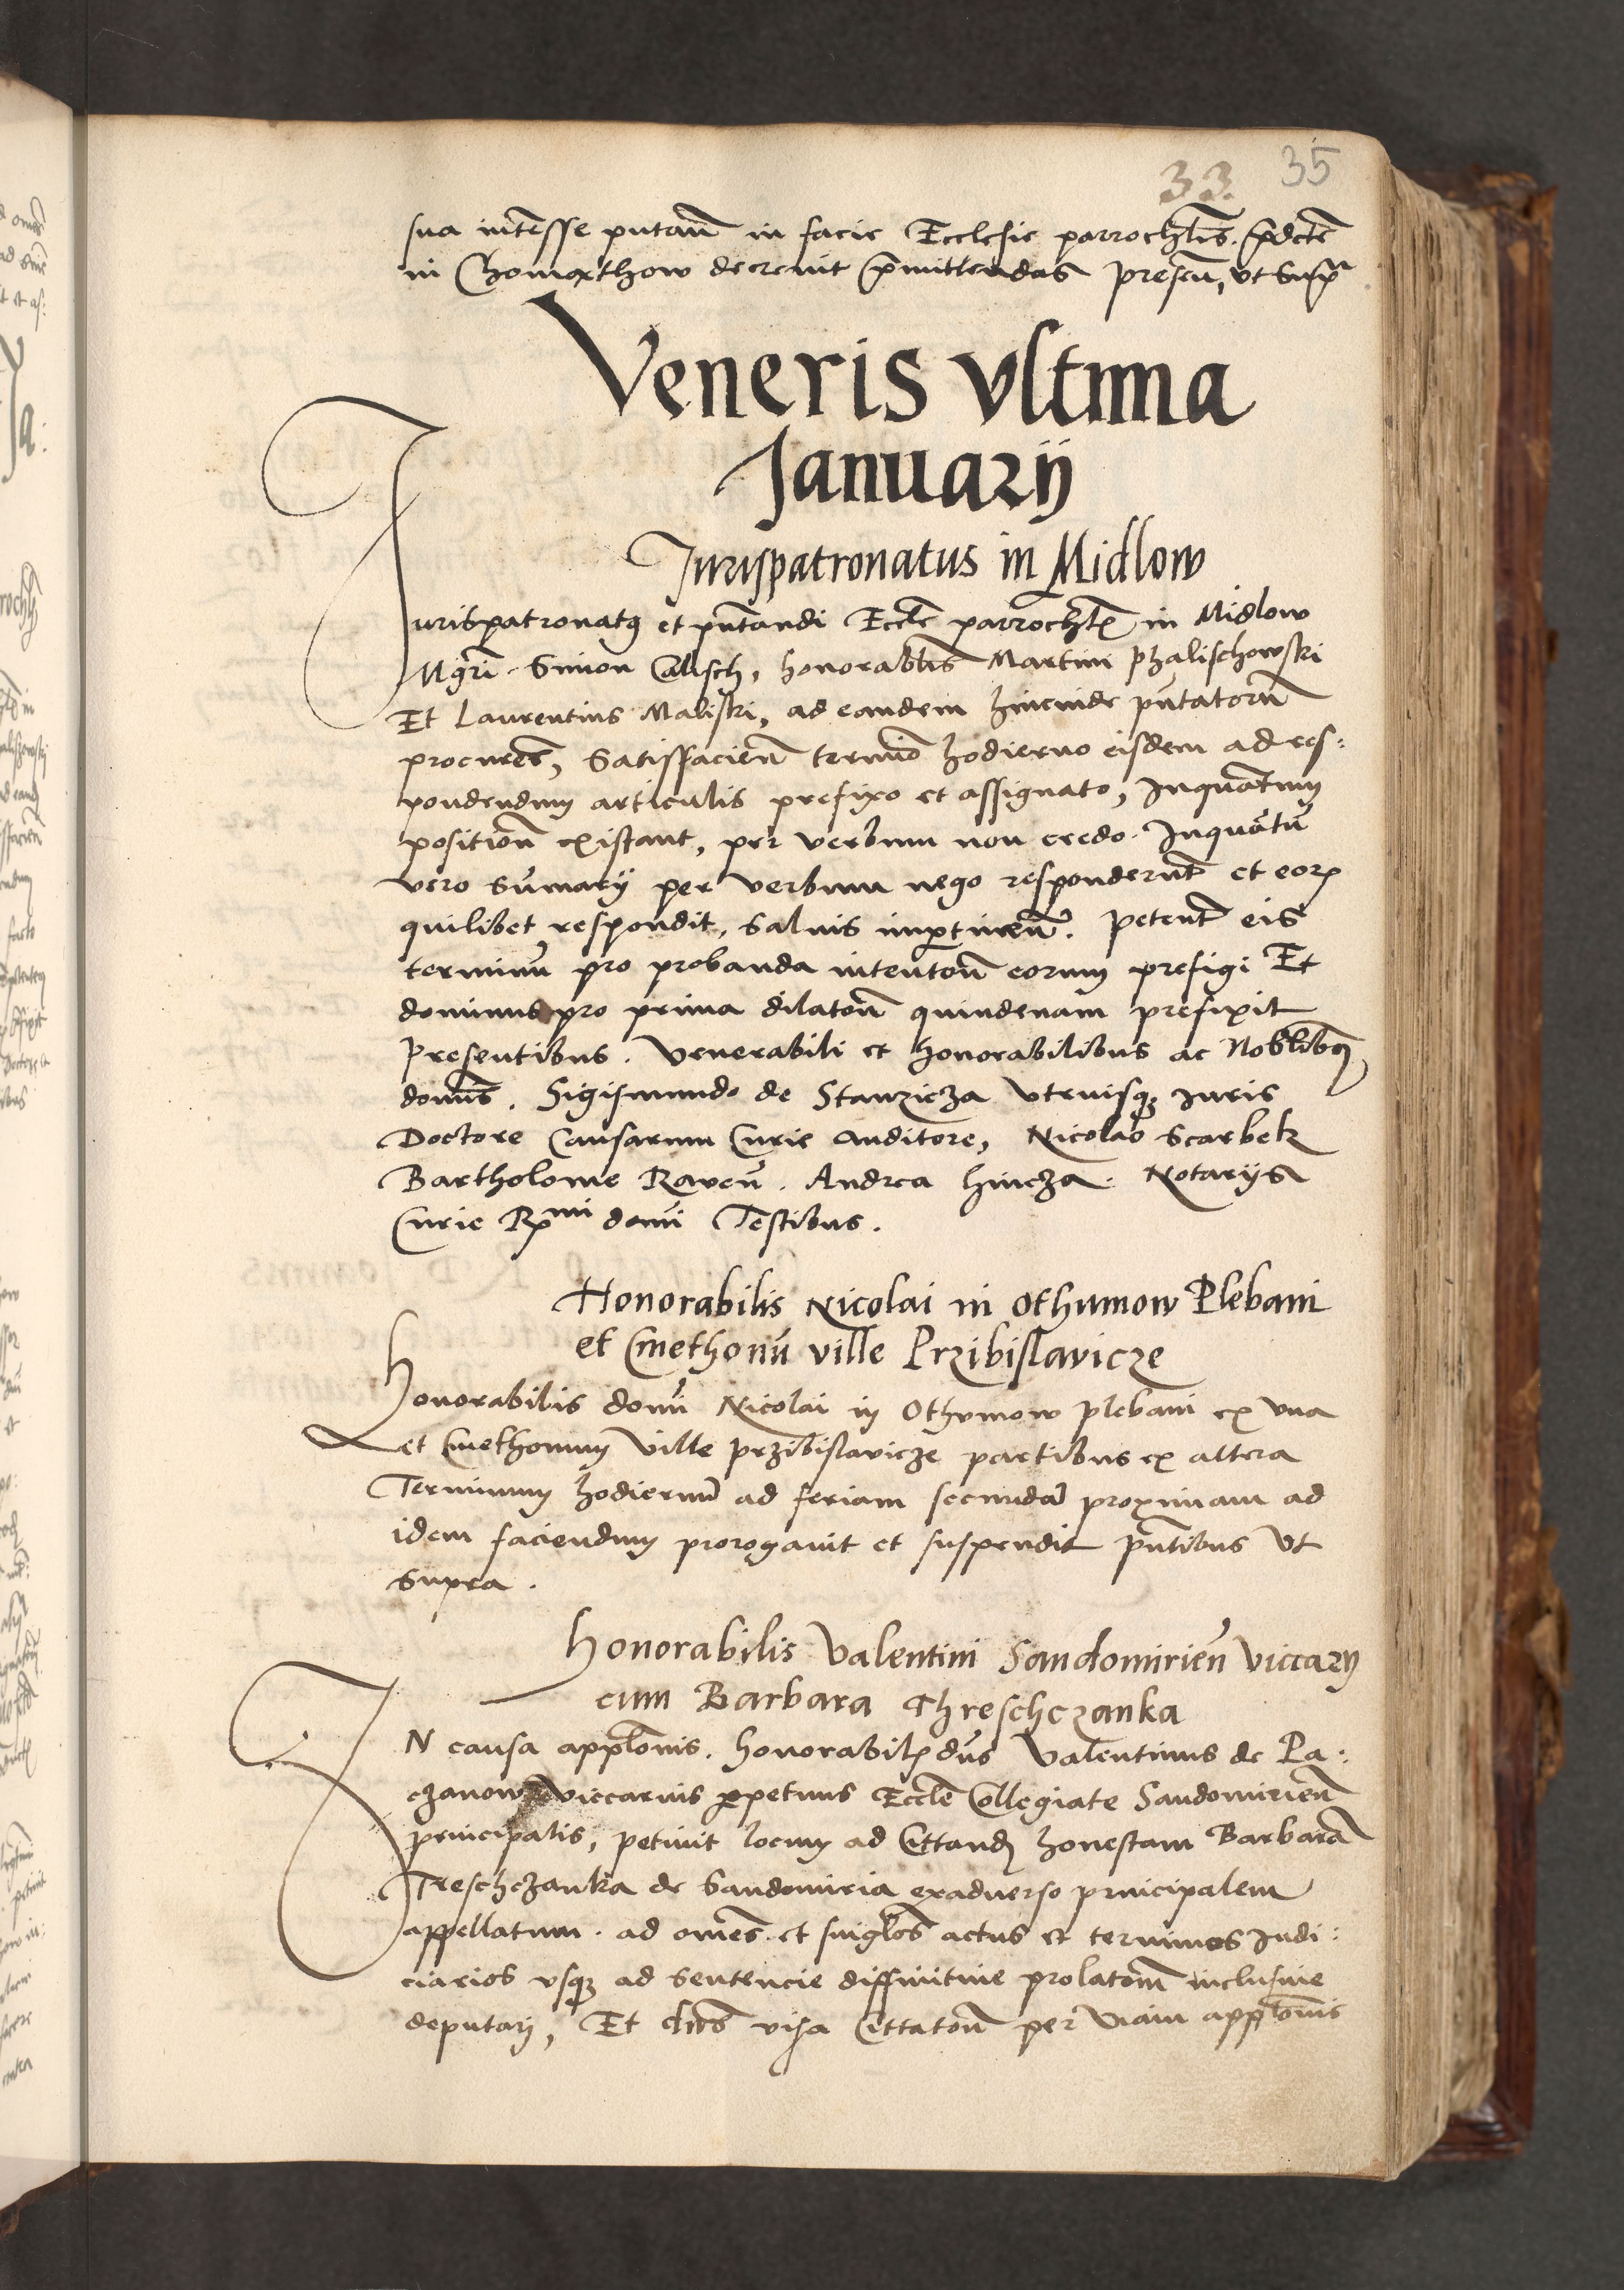 33. 35
sua intēsse putān in facie Ecclesie parrochłis. p̄dctē
in Chomaxthow decrevit p̄mittendas presen, ut supra
Veneris ultima
Januarij
Jurispatronatus in Midlow
Jurispatronatus et pn̄tandi Eccłe parrochłis in Midlow
Mgr̄i Simon Calisch, honorabłis Martini Phalischowski
Et Laurentius Maliski, ad eandem hincinde pn̄tatorū
procures, Satisfacien termīo hodierno eisdem ad res:
pondendum articulis prefixo et assignato, Inquantum
position existant, per verbum non credo. Inquātū
vero sūmarij per verbum nego responderūt et eorum
quilibet respondit, salvis impertinen. Petierūt eis
terminū pro probanda intentōn eorum prefigi Et
dominus pro prima dilatōn quindenam prefixit
Presentibus. Venerabili et honorabilibus ac Nobłibus
domīs. Sigismundo de Stanzicza Utriusq3 Juris
Doctore Causarum Curie auditore, Nicolao Scarbek
Bartholomeo Raven. Andrea Hincza. Notarijs
Curie Rmi domī Testibus.
Honorabilis Nicolai in Othumow Plebani
et Cmethonū ville Przibislavicze
Honorabilis domī Nicolai in Othumow plebani ex una
et Cmethonum Ville Przibislavicze partibus ex altera
Terminum hodiernū ad feriam secundā proximam ad
idem faciendum prorogavit et suspendit pn̄tibus ut
supra.
Honorabilis Valentini Sandomirien Viccarij
cum Barbara Threschczanka
IN causa appłonis. Honorabilis dn̄s Valentinus de Pa:
czanow viccarius perpetuus Eccłe Collegiate Sandomirien
principalis, petivit locum ad Cittand honestam Barbarā
Treschczanka de Sandomiria exadverso principalem
appellatum. ad omēs et singłos actus et terminos Judi:
ciarios usq3 ad sentencie diffinitive prolatōm inclusive
deputari, Et dn̄s visa Cittatōn per viam appłonis